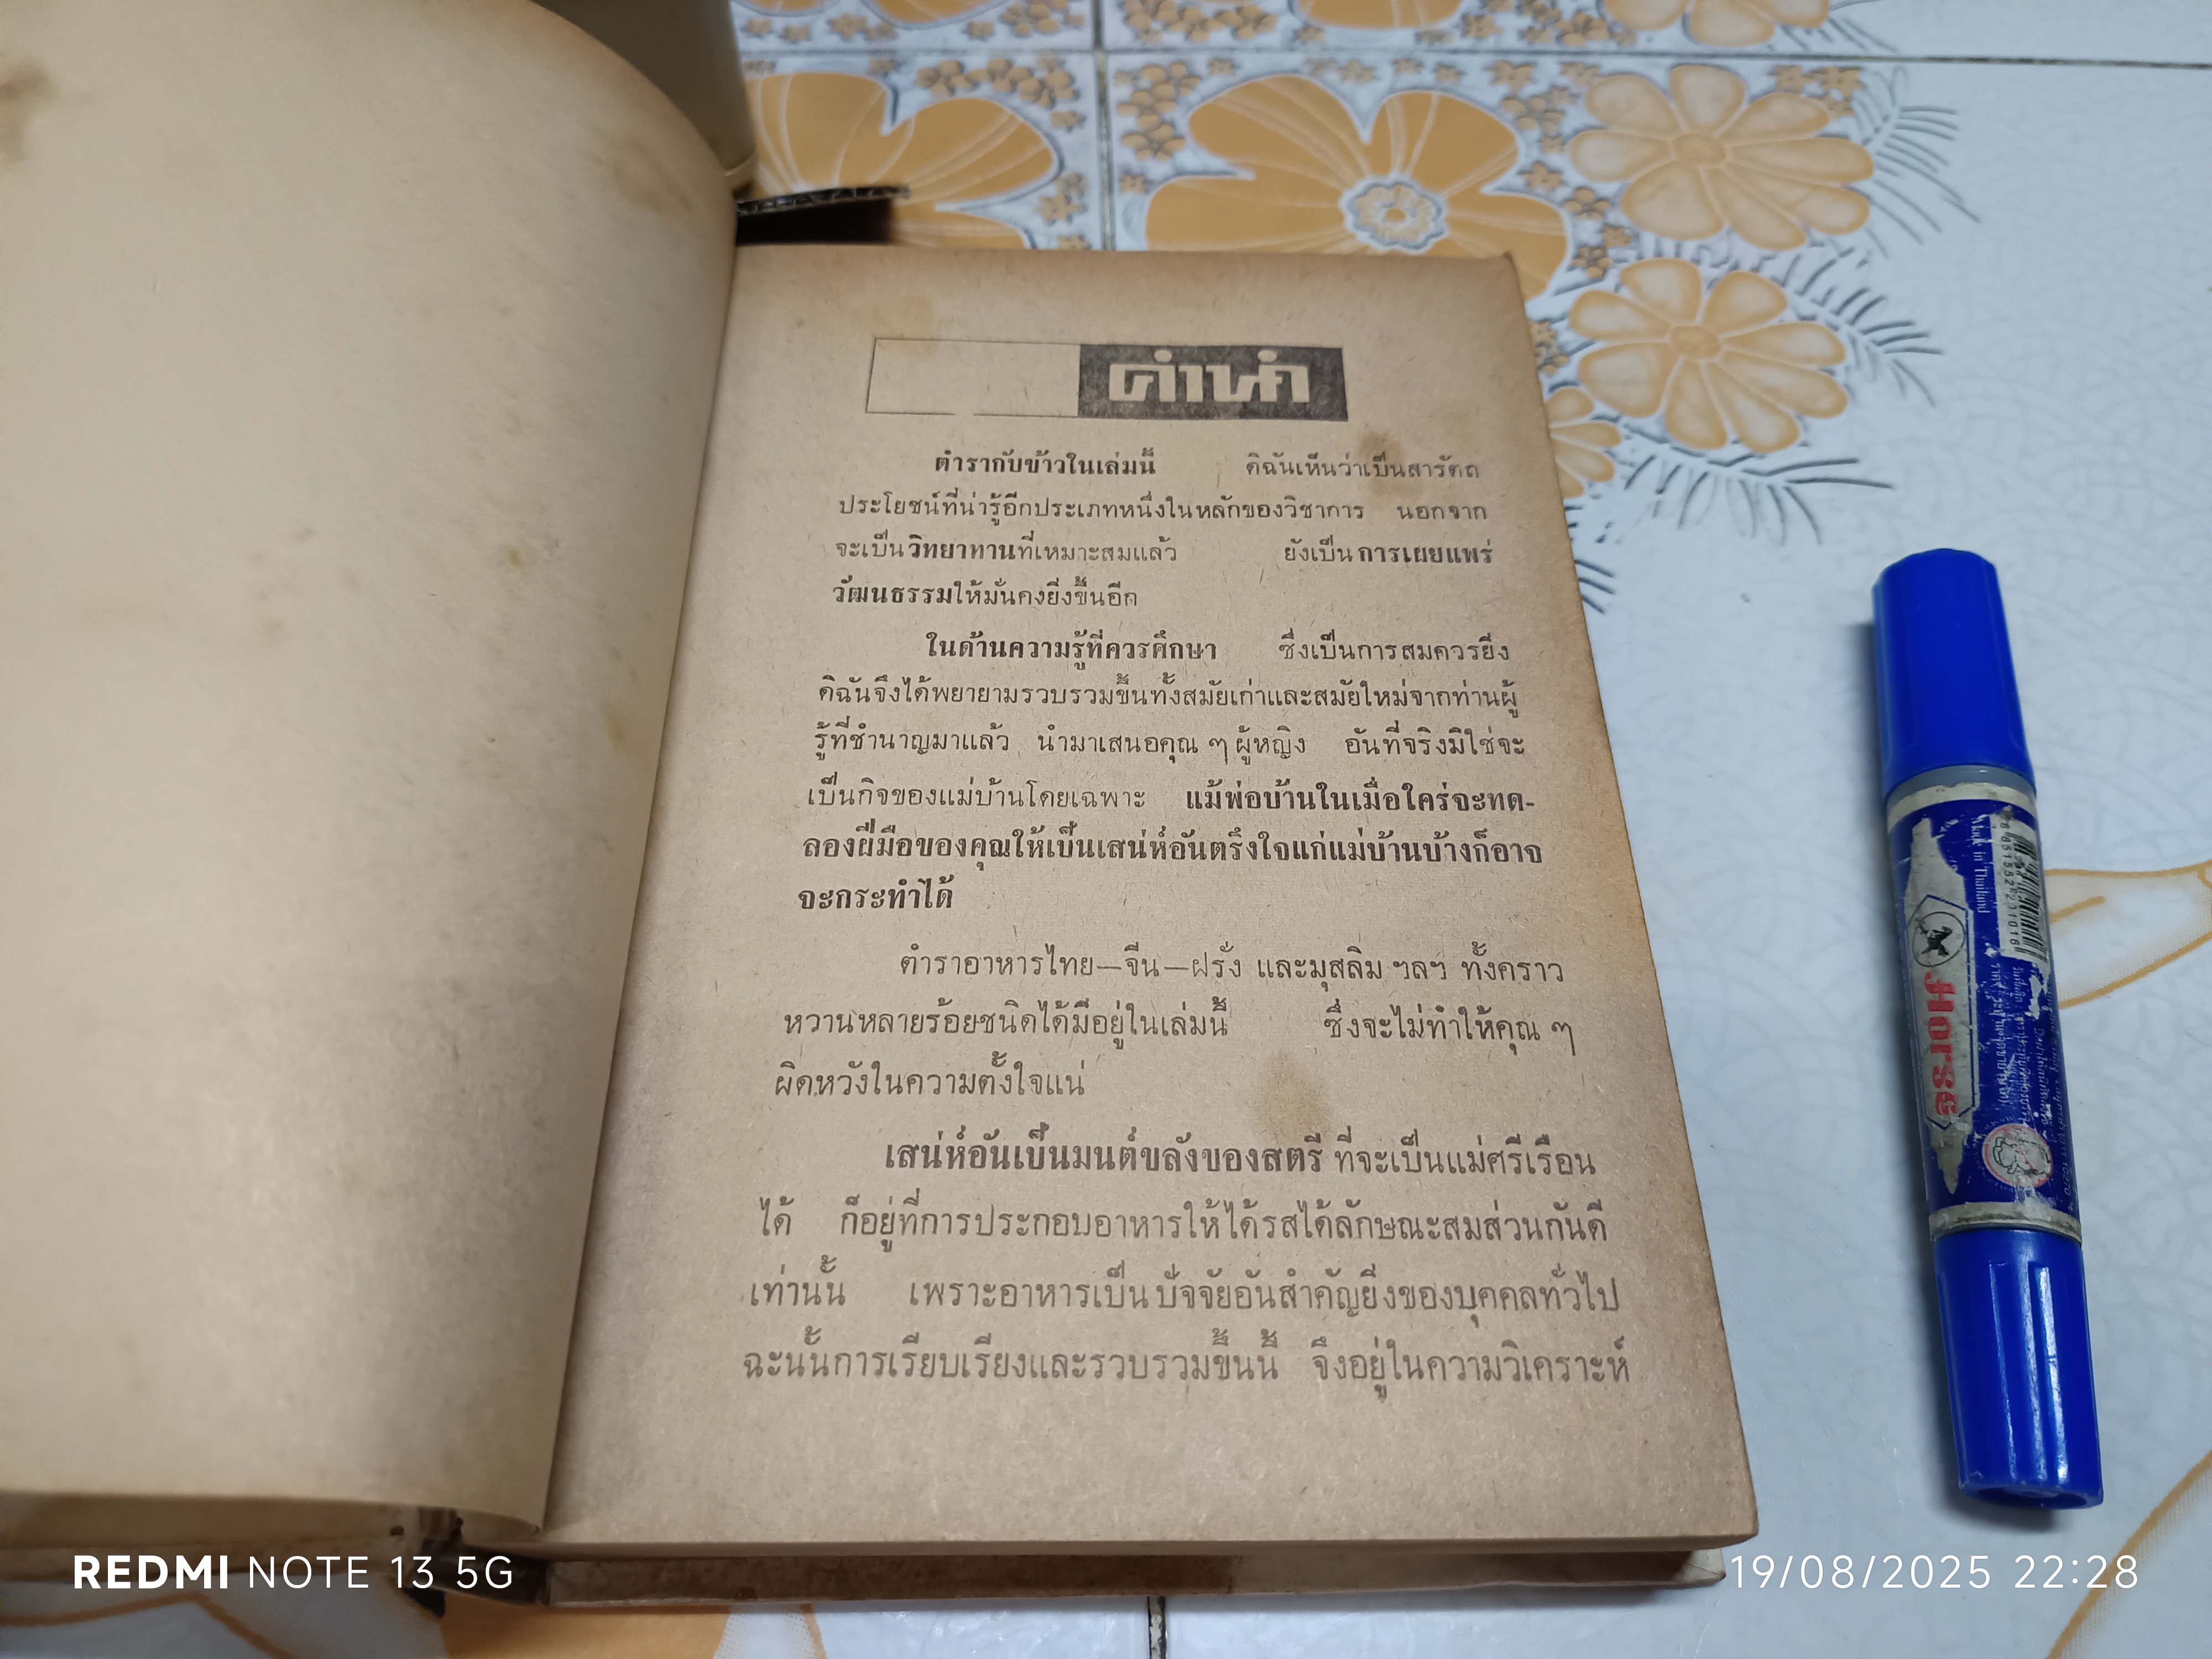 คำนำ
ตำรากับข้าวในเล่มนี้ ดิฉันเห็นว่าเป็นสารัตถ
ประโยชน์ที่น่ารู้อีกประเภทหนึ่งในหลักของวิชาการ นอกจาก
จะเป็นวิทยาทานที่เหมาะสมแล้ว ยังเป็นการเผยแพร่
วัฒนธรรมให้มั่นคงยิ่งขึ้นอีก
ในด้านความรู้ที่ควรศึกษา ซึ่งเป็นการสมควรยิ่ง
ดิฉันจึงได้พยายามรวบรวมขึ้นทั้งสมัยเก่าและสมัยใหม่จากท่านผู้
รู้ที่ชำนาญมาแล้ว นำมาเสนอคุณ ๆ ผู้หญิง อันที่จริงมิใช่จะ
เป็นกิจของแม่บ้านโดยเฉพาะ แม้พ่อบ้านในเมื่อใคร่จะทด-
ลองฝีมือของคุณให้เป็นเสน่ห์อันตรึงใจแก่แม่บ้านบ้างก็อาจ
จะกระทำได้
ตำราอาหารไทย—จีน—ฝรั่ง และมุสลิม ฯลฯ ทั้งคราว
หวานหลายร้อยชนิดได้มีอยู่ในเล่มนี้ ซึ่งจะไม่ทำให้คุณ ๆ
ผิดหวังในความตั้งใจแน่
เสน่ห์อันเป็นมนต์ขลังของสตรี ที่จะเป็นแม่ศรีเรือน
ได้ ก็อยู่ที่การประกอบอาหารให้ได้รสได้ลักษณะสมส่วนกันดี
เท่านั้น เพราะอาหารเป็นปัจจัยอันสำคัญยิ่งของบุคคลทั่วไป
ฉะนั้นการเรียบเรียงและรวบรวมขึ้นนี้ จึงอยู่ในความวิเคราะห์
Made in Thailand
Horse
REDMI NOTE 13 5G
19/08/2025 22:28